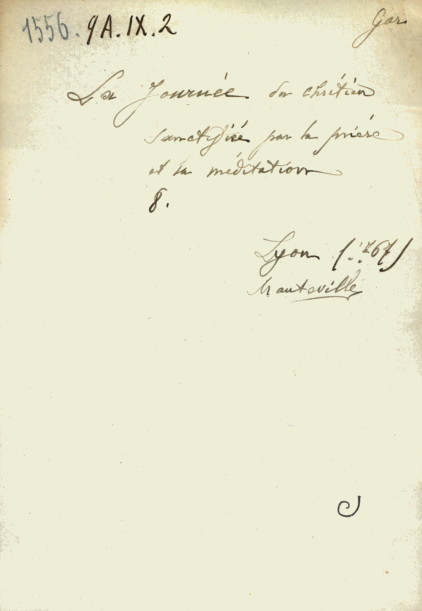 1556. 9A.IX.2
Gar
La Journée du chrétien
sanctifiée par la prière
et la méditation
8.
Lyon (1767)
Mauteville